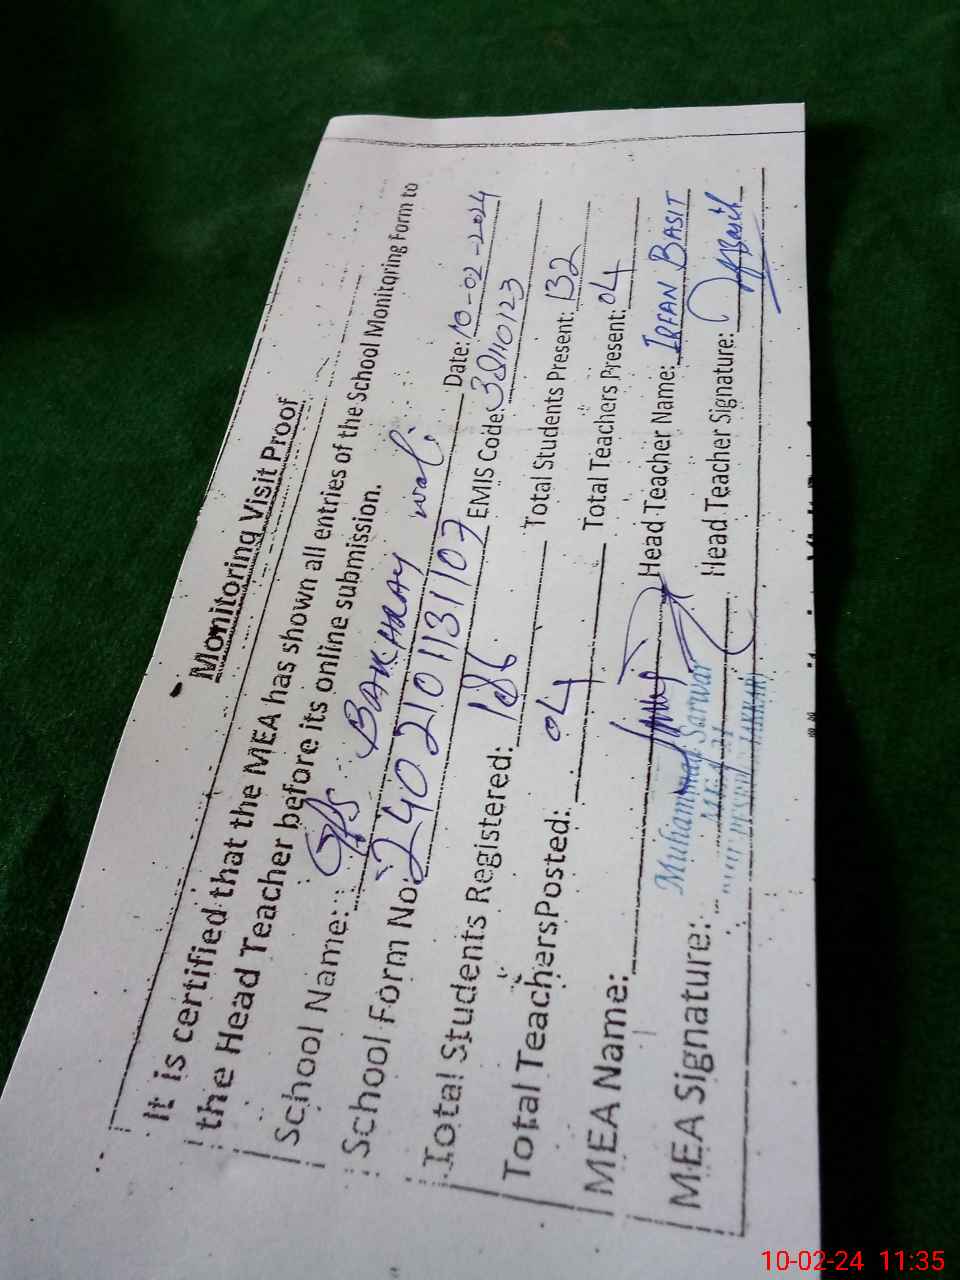 Monitoring Visit Proof
It is certified that the MEA has shown all entries of the School Monitoring Form to
the Head Teacher before its online submission.
School Name: GPS BAKHRAY wali Date: 10-02-2024
School Form No: 2402101131107 EMIS Code: 38110123
Total Students Registered: 186 Total Students Present: 132
Total Teachers Posted: 04 Total Teachers Present: 04
MEA Name: Head Teacher Name: IRFAN BASIT
Muhammad Sarwar
MEA Signature: Head Teacher Signature:
10-02-24 11:35